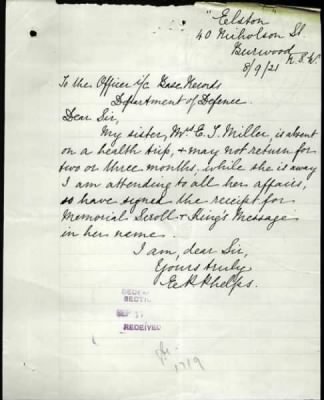 "Elston"
40 Nicholson St.
Burwood
N.S.W.
8/9/21
To the Officer i/c Base Records
Department of Defence.
Dear Sir,
My sister, Mrs E. J. Miller, is absent
on a health trip, & may not return for
two or three months, while she is away
I am attending to all her affairs,
so have signed the receipt for
Memorial Scroll & King's Message
in her name.
I am, dear Sir,
Yours truly
E. R. Phelps.
SEP
RECEIVED